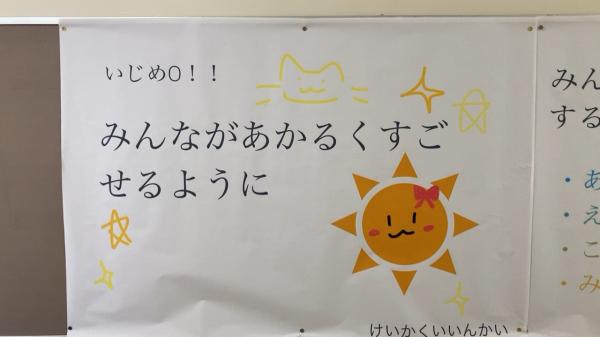 いじめ0！！
みんながあかるくすご
せるように
けいかくいいんかい
みん
する
・あ
・え
・こ
・み